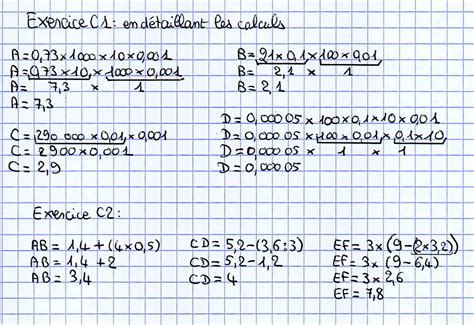 Exercice C1 : en détaillant les calculs
A = 0,73 × 1000 × 10 × 0,001
A = 0,73 × 10, × 1000 × 0,001
A = 7,3 × 1
A = 7,3
B = 21 × 0,1 × 100 × 0,01
B = 2,1 × 1
B = 2,1
C = 290 000 × 0,01 × 0,001
C = 2900 × 0,001
C = 2,9
D = 0,000 05 × 100 × 0,1 × 10 × 0,01
D = 0,000 05 × 100 × 0,01 × 0,1 × 10
D = 0,000 05 × 1 × 1
D = 0,000 05
Exercice C2 :
AB = 1,4 + (4 × 0,5)
AB = 1,4 + 2
AB = 3,4
CD = 5,2 - (3,6 : 3)
CD = 5,2 - 1,2
CD = 4
EF = 3 × (9 - 2 × 3,2)
EF = 3 × (9 - 6,4)
EF = 3 × 2,6
EF = 7,8